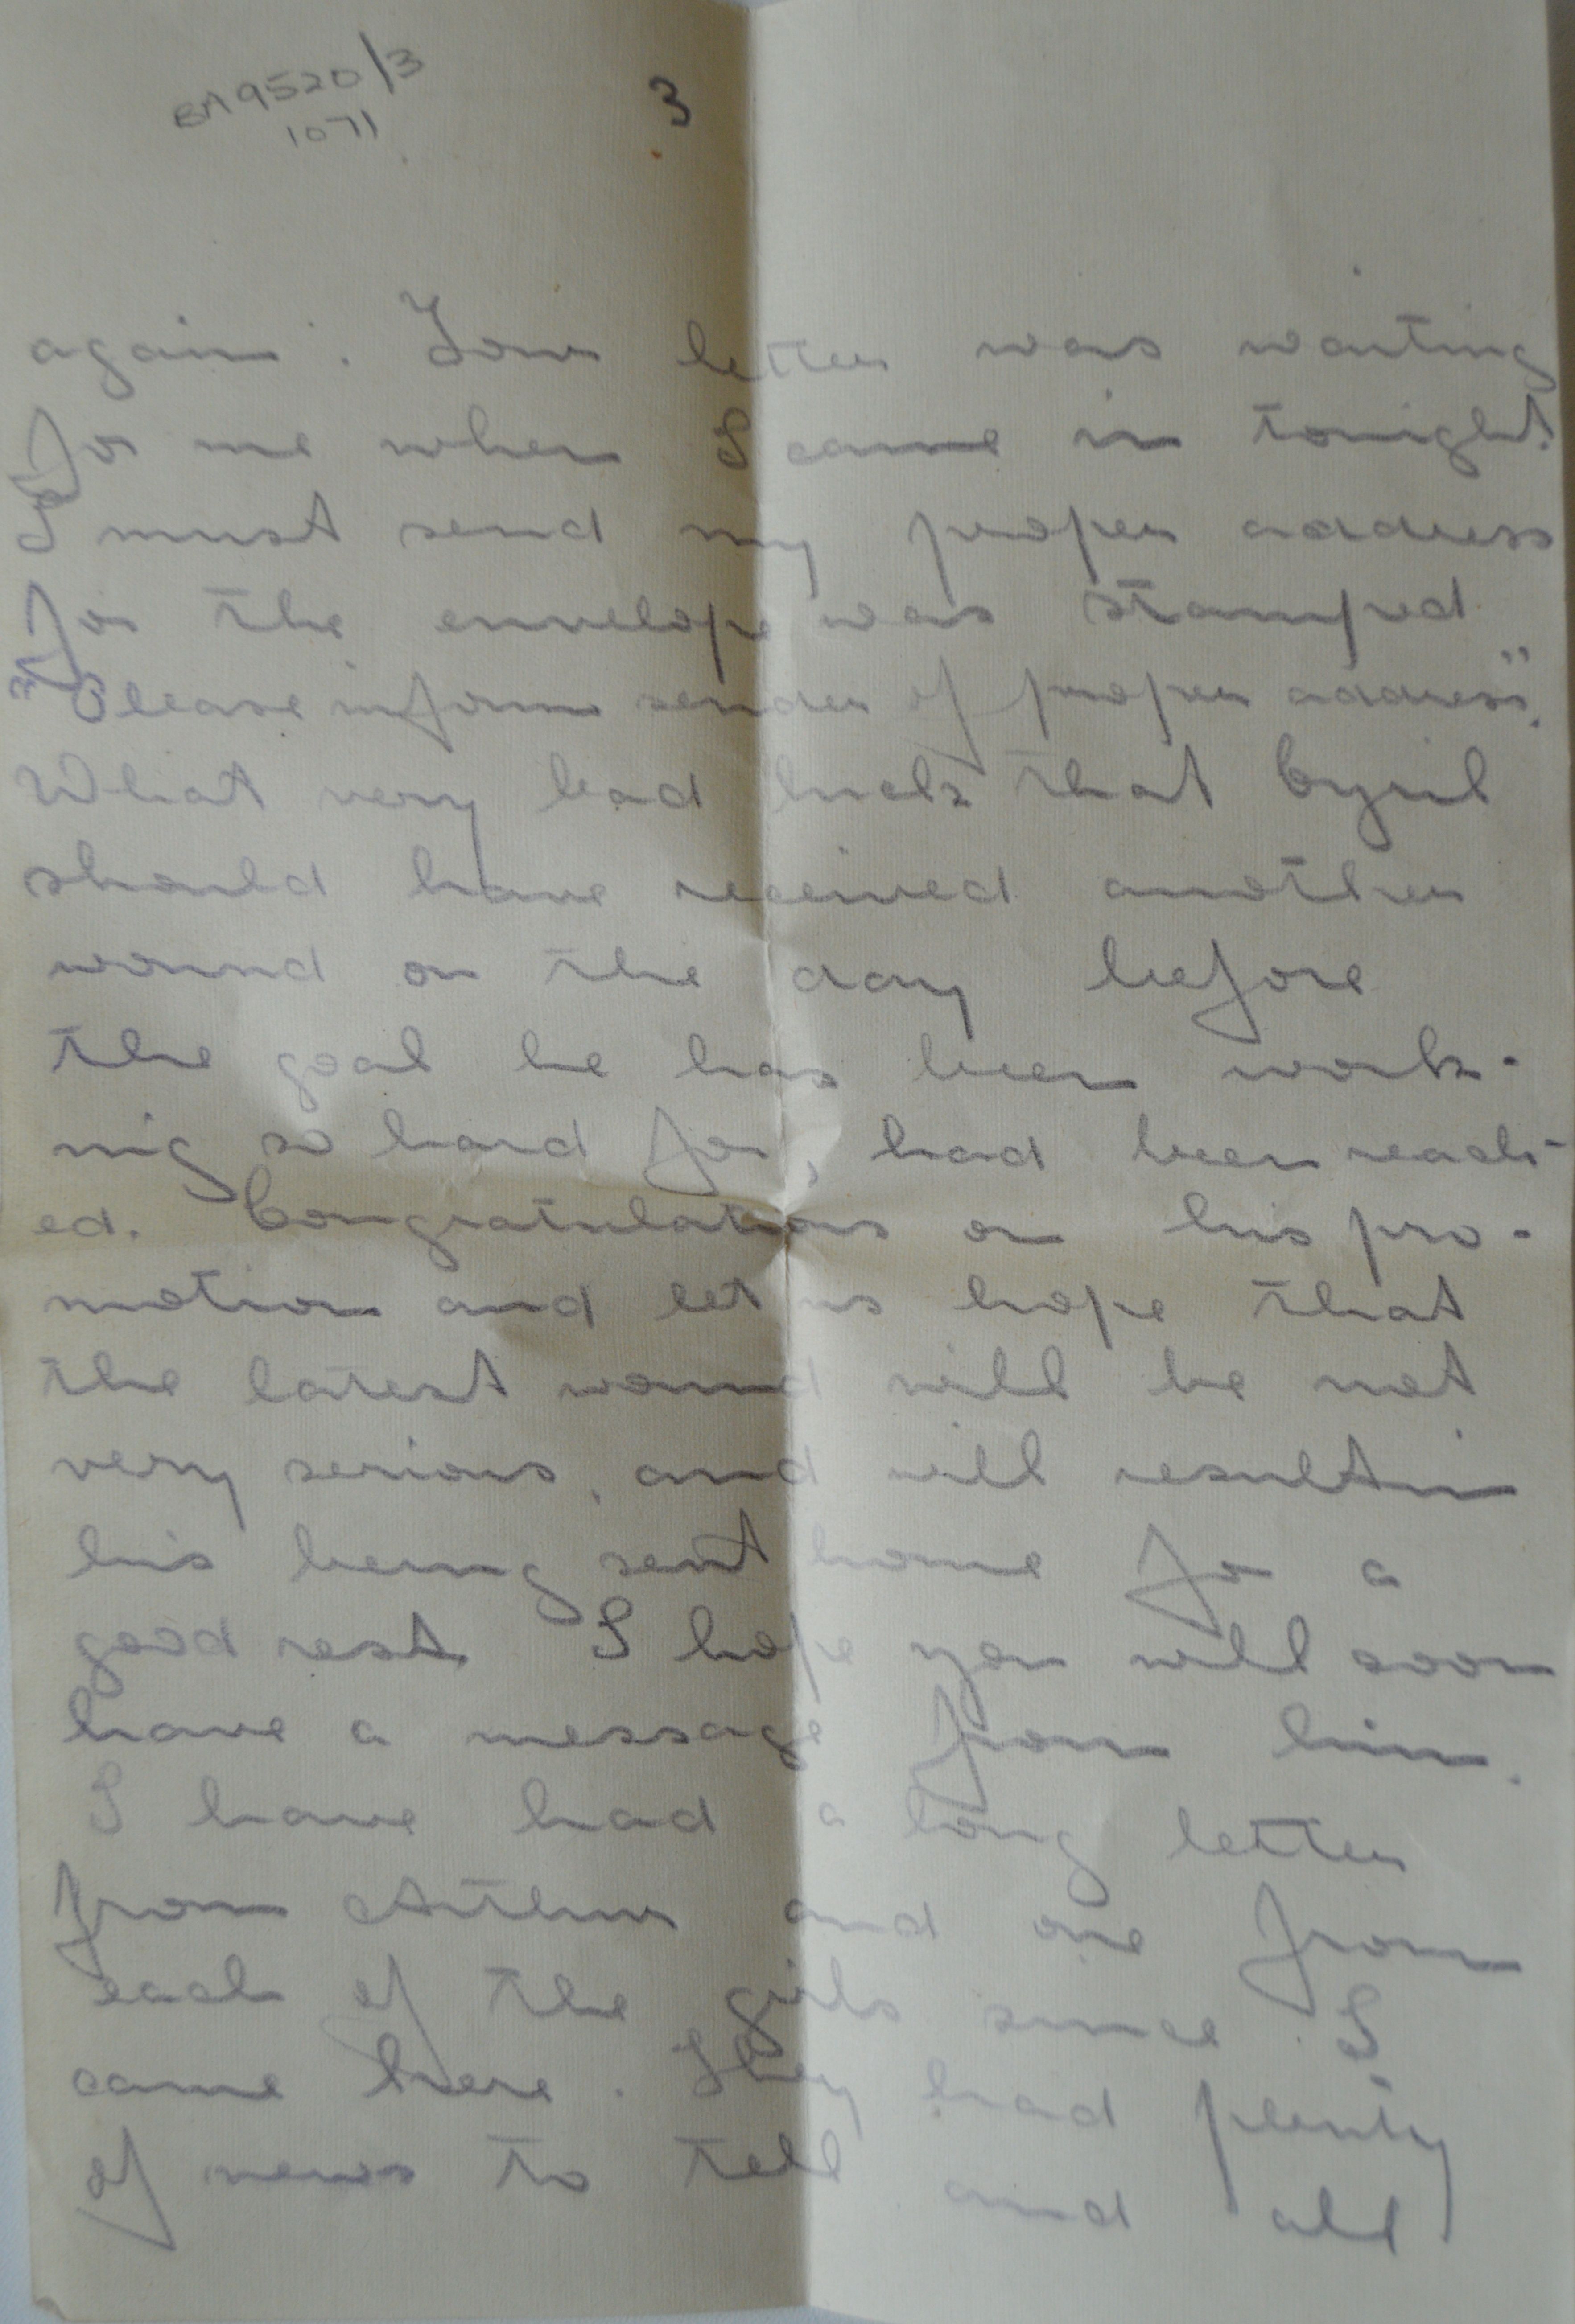 BA9520/3
1071
3
again. Your letter was waiting
for me when I came in tonight.
I must send my proper address
for the envelope was stamped
"Please inform sender of proper address".
What very bad luck that Cyril
should have received another
wound on the day before
the goal he has been work-
ing so hard for, had been reach-
ed. Congratulations on his pro-
motion and let us hope that
the latest wound will be not
very serious, and will result in
his being sent home for a
good rest. I hope you will soon
have a message from him.
I have had a long letter
from Arthur and one from
each of the girls since I
came here. They had plenty
of news to tell and all